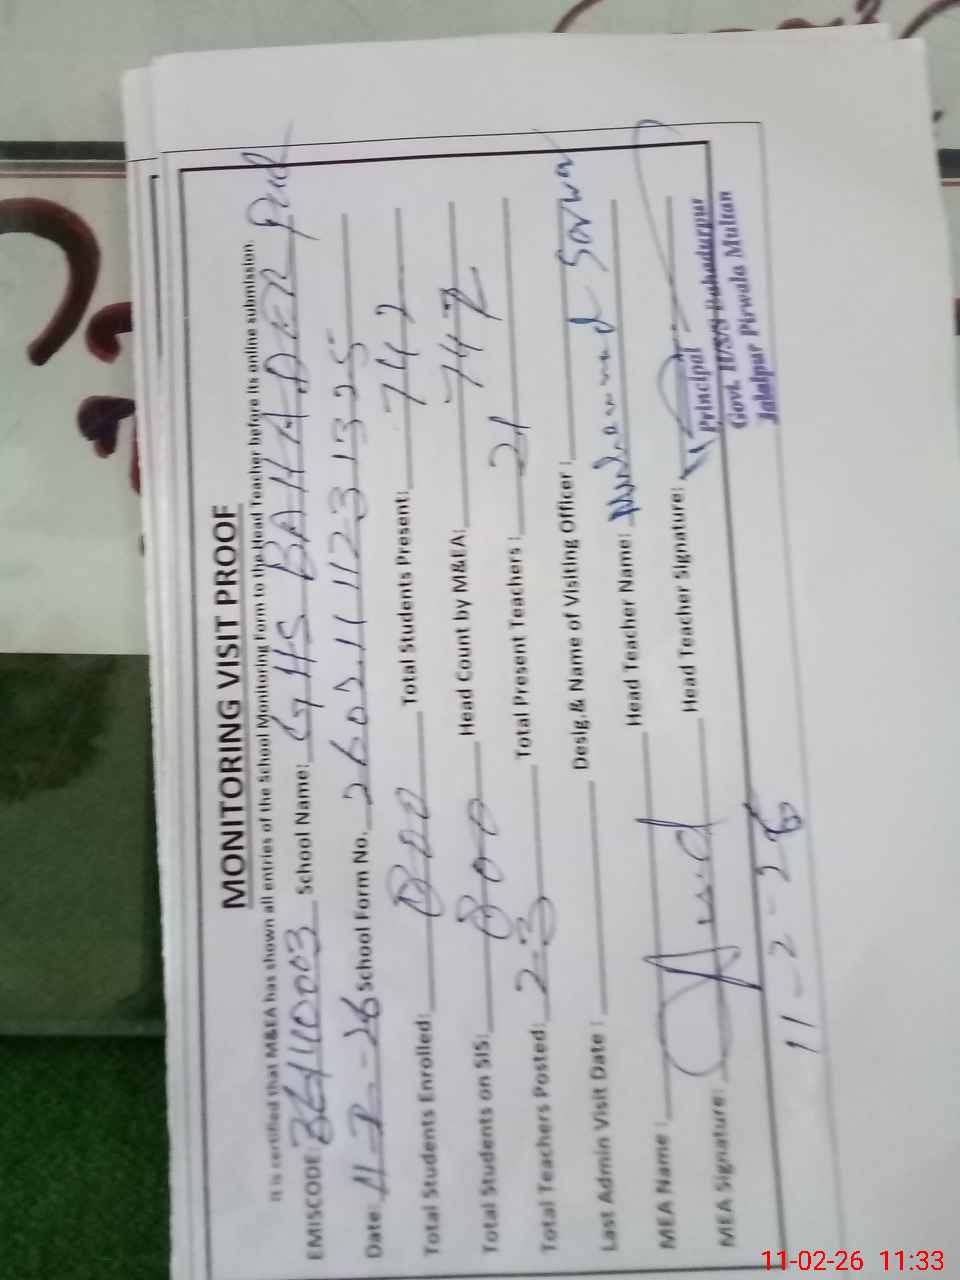 MONITORING VISIT PROOF
It is certified that M&EA has shown all entries of the School Monitoring Form to the Head Teacher before its online submission.
EMISCODE: 36140003 School Name: GHS BAHADER PUR
Date: 11-2-26 School Form No. 26021111231325
Total Students Enrolled: 800 Total Students Present: 742
Total Students on SIS: 800 Head Count by M&EA: 742
Total Teachers Posted: 23 Total Present Teachers: 21
Last Admin Visit Date : Desig.& Name of Visiting Officer :
MEA Name : Head Teacher Name: Muhammad Sarwar
MEA Signature: Head Teacher Signature:
11-2-26
Principal
Govt. H/S/S Bahadurpur
Jalalpur Pirwala Multan
11-02-26 11:33